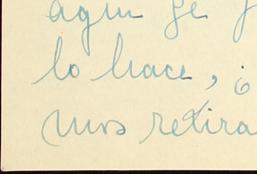 aqui se
lo hace, ¿
nos retira